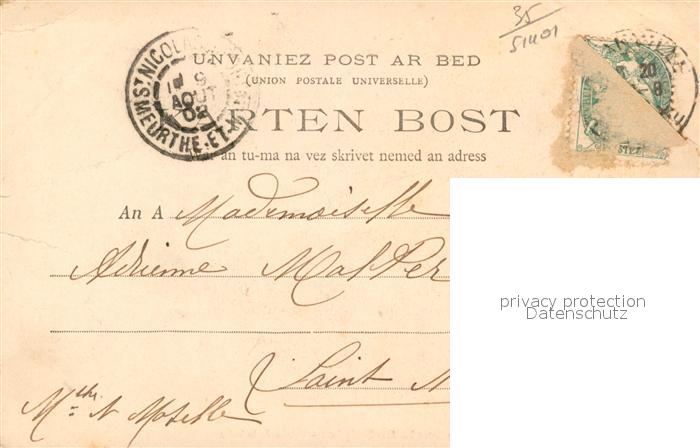 35
51401
UNVANIEZ POST AR BED
(UNION POSTALE UNIVERSELLE)
RTEN BOST
War an tu-ma na vez skrivet nemed an adress
ST NICOLAS
9
AOUT
02
MEURTHE-ET-M
20
8
An A Mademoiselle
Adrienne
Saint N
Mthe N Moselle
privacy protection
Datenschutz